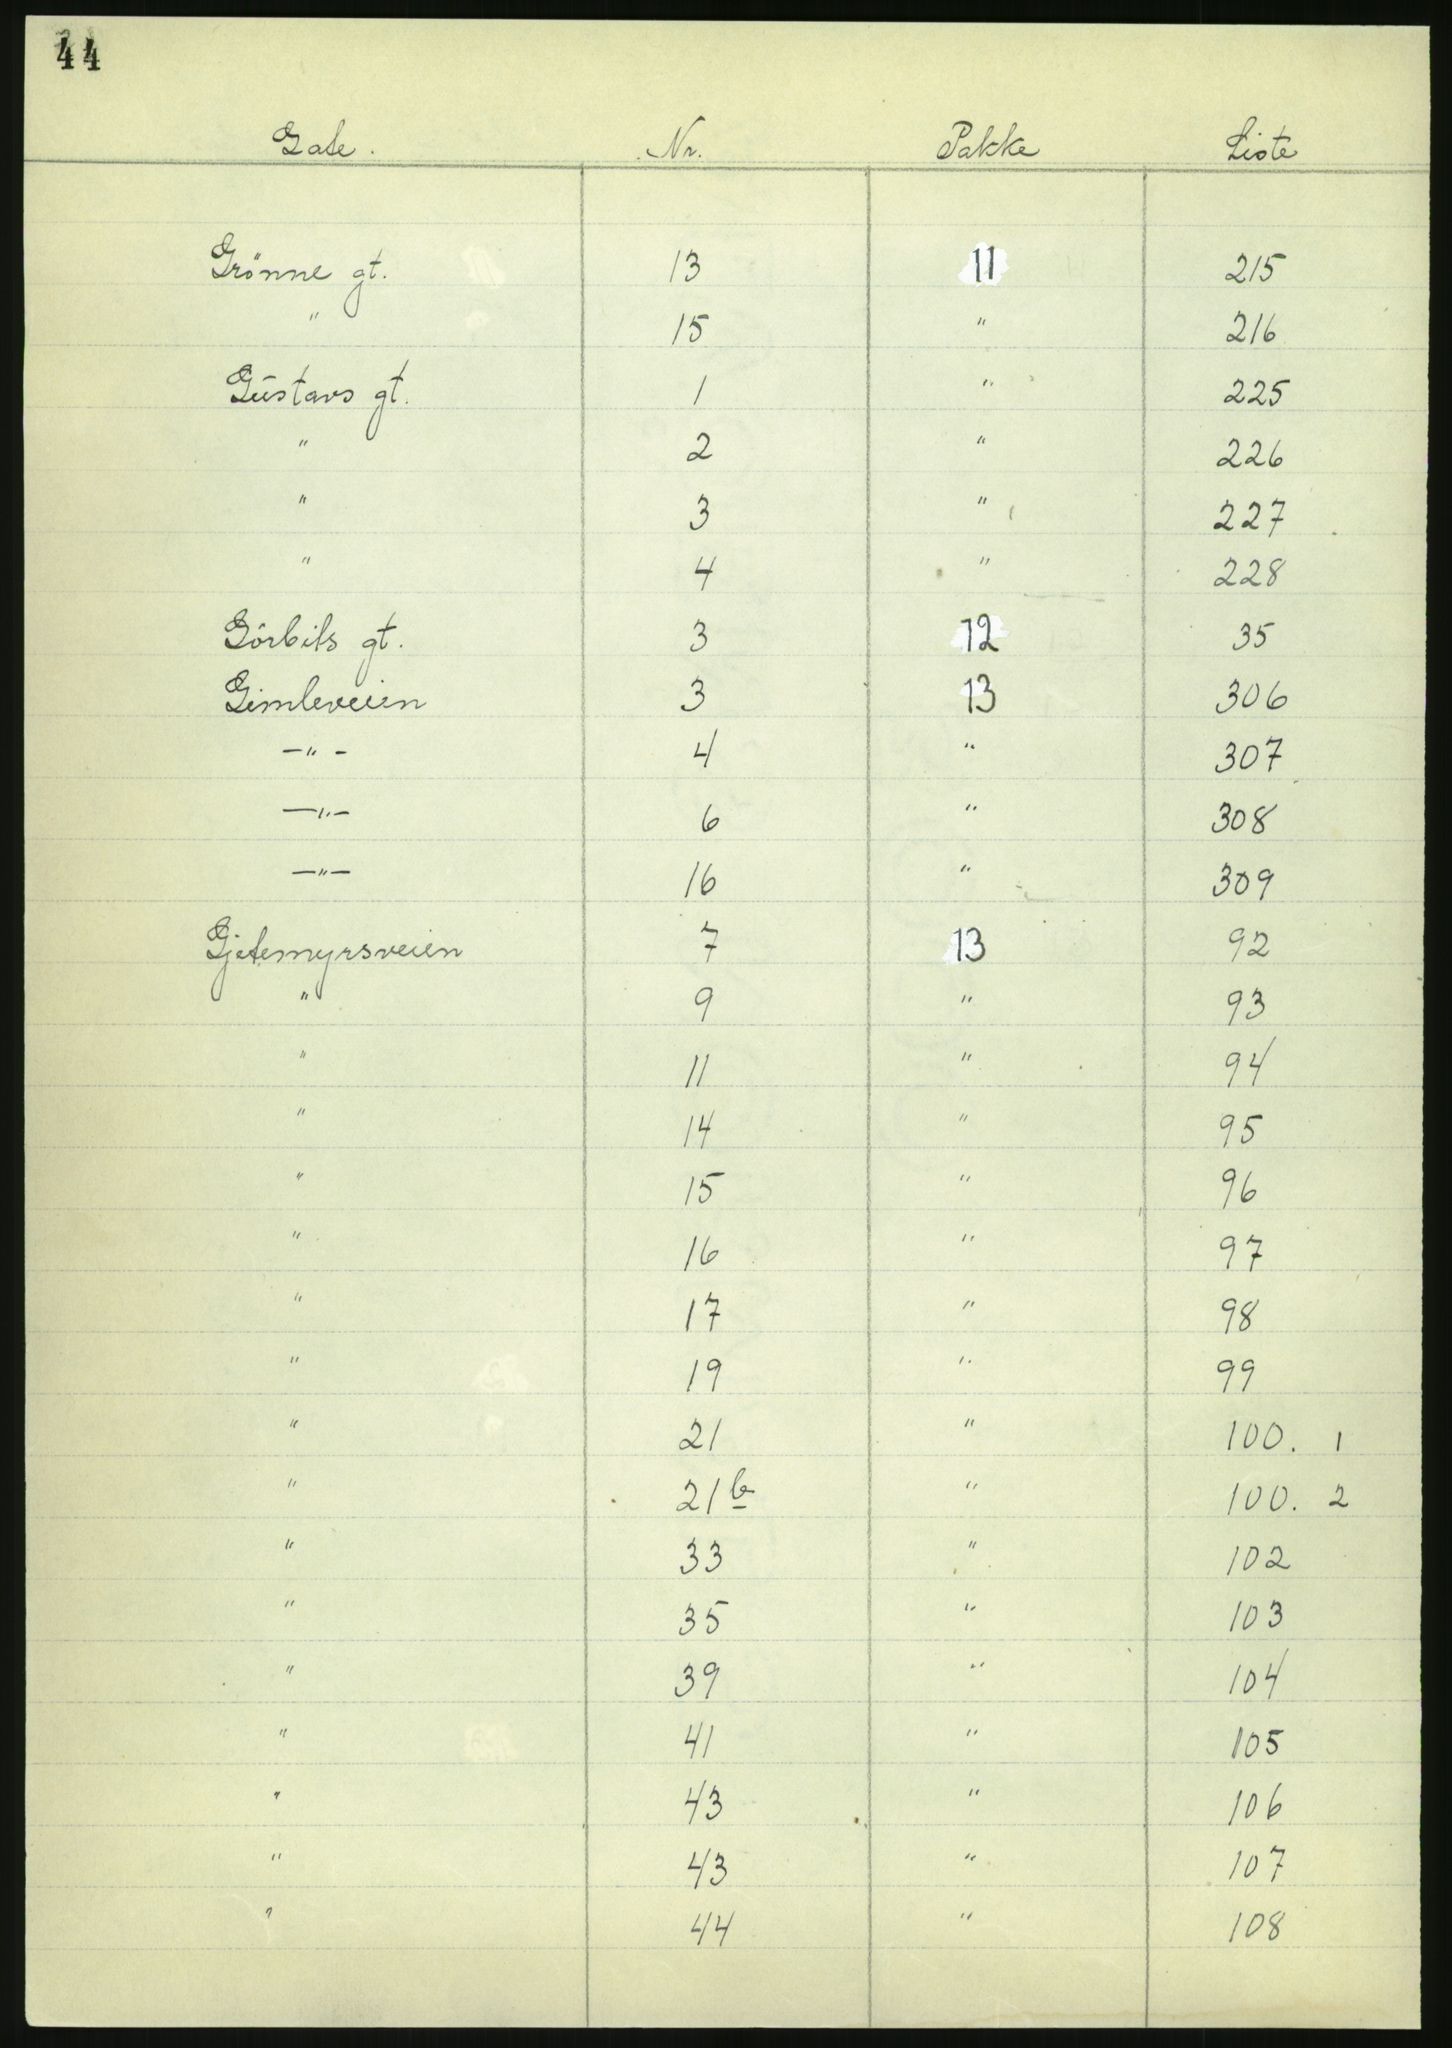 44
Gate. Nr. Pakke Liste
Grönne gt. 13 11 215
" 15 " 216
Gustavs gt. 1 " 225
" 2 " 226
" 3 " 227
" 4 " 228
Görbits gt. 3 12 35
Gimleveien 3 13 306
—"— 4 " 307
—"— 6 " 308
—"— 16 " 309
Gjetemyrsveien 7 13 92
" 9 " 93
" 11 " 94
" 14 " 95
" 15 " 96
" 16 " 97
" 17 " 98
" 19 " 99
" 21 " 100. 1
" 21b " 100. 2
" 33 " 102
" 35 " 103
" 39 " 104
" 41 " 105
" 43 " 106
" 43 " 107
" 44 " 108